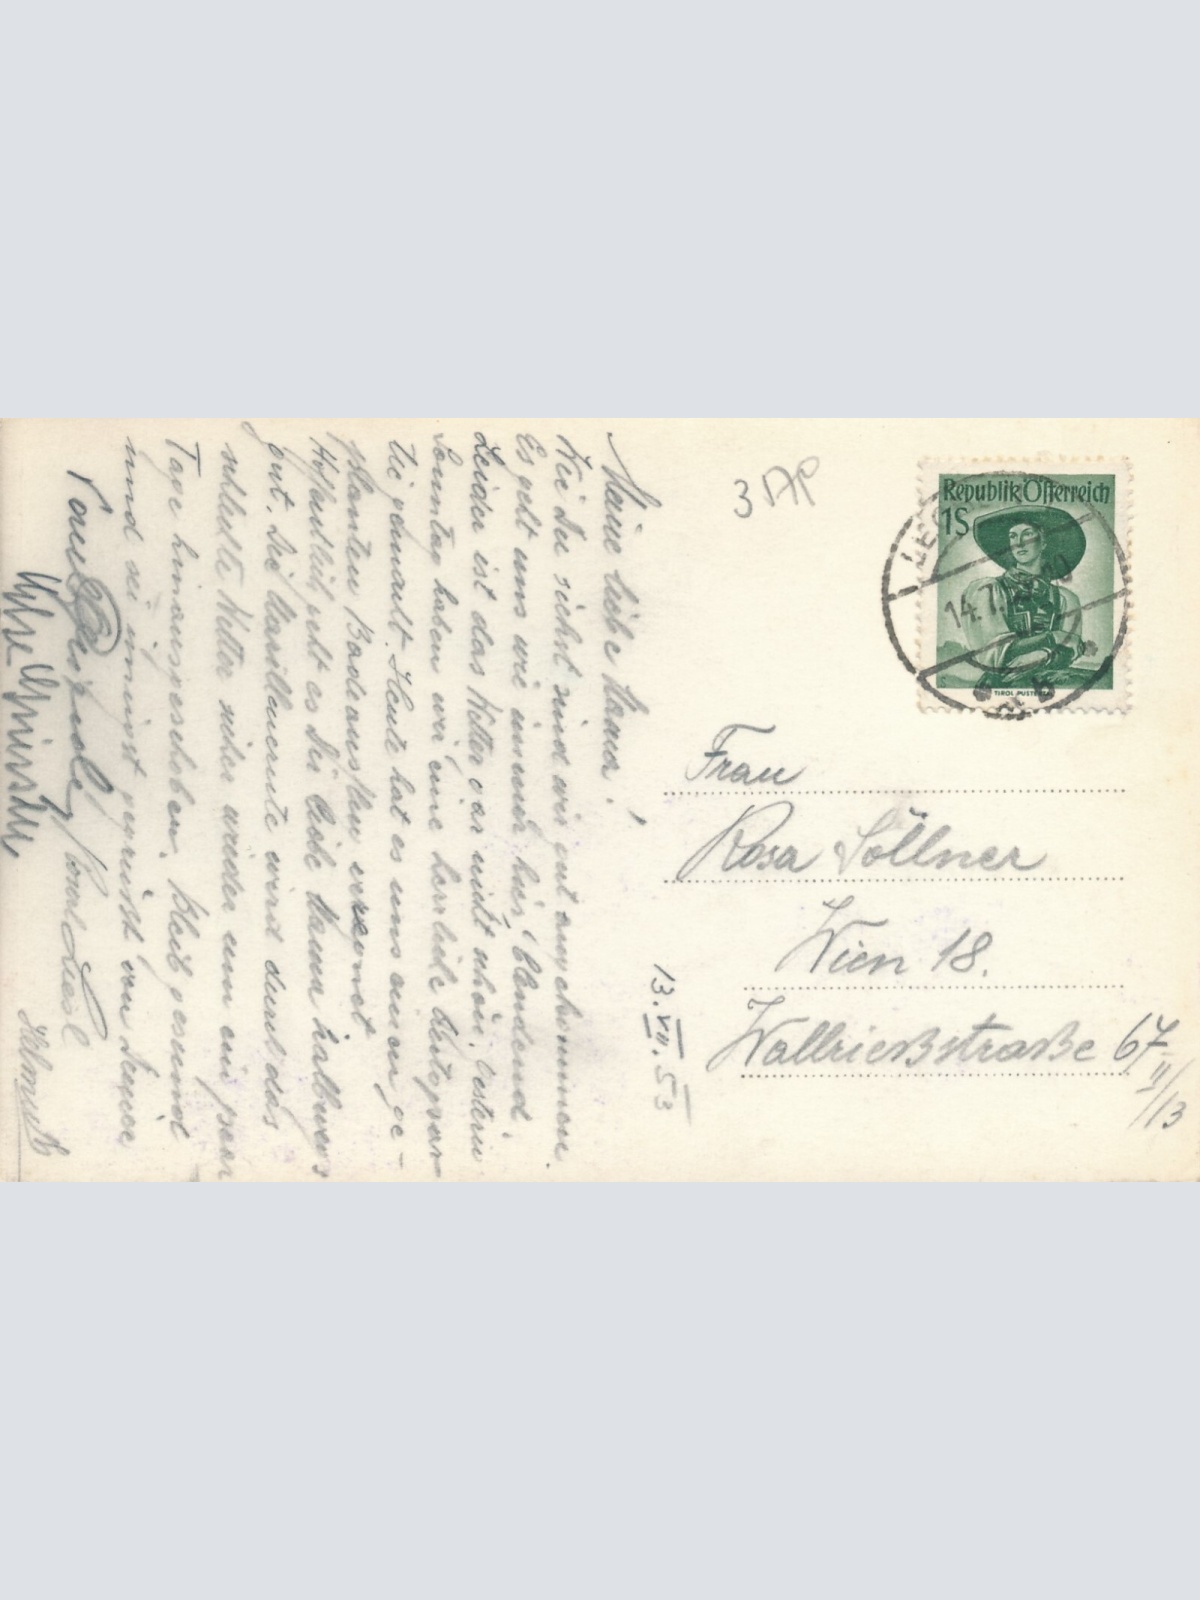 Meine liebe Mama!
Wie Du siehst sind wir gut angekommen.
Es geht uns wie immer hier blendend.
Leider ist das Wetter gar nicht schön. Gestern
Sonntag haben wir eine herrliche
tie gemacht. Heute hat es uns einen ge-
planten Badeausflug verregnet
Hoffentlich geht es Dir liebe Mama halbwegs
gut. Die Marillenernte wird durch das
schlechte Wetter sicher wieder um ein paar
Tage hinausgeschoben. Bleib gesund
und sei innigst gegrüßt von Deiner
Liesl
Helmut
13.VII.53
3 AP
Republik Österreich
1S
TIROL PUSTERTAL
14.7.
Frau
Rosa Söllner
Wien 18.
Wallrießstraße 67
II/13